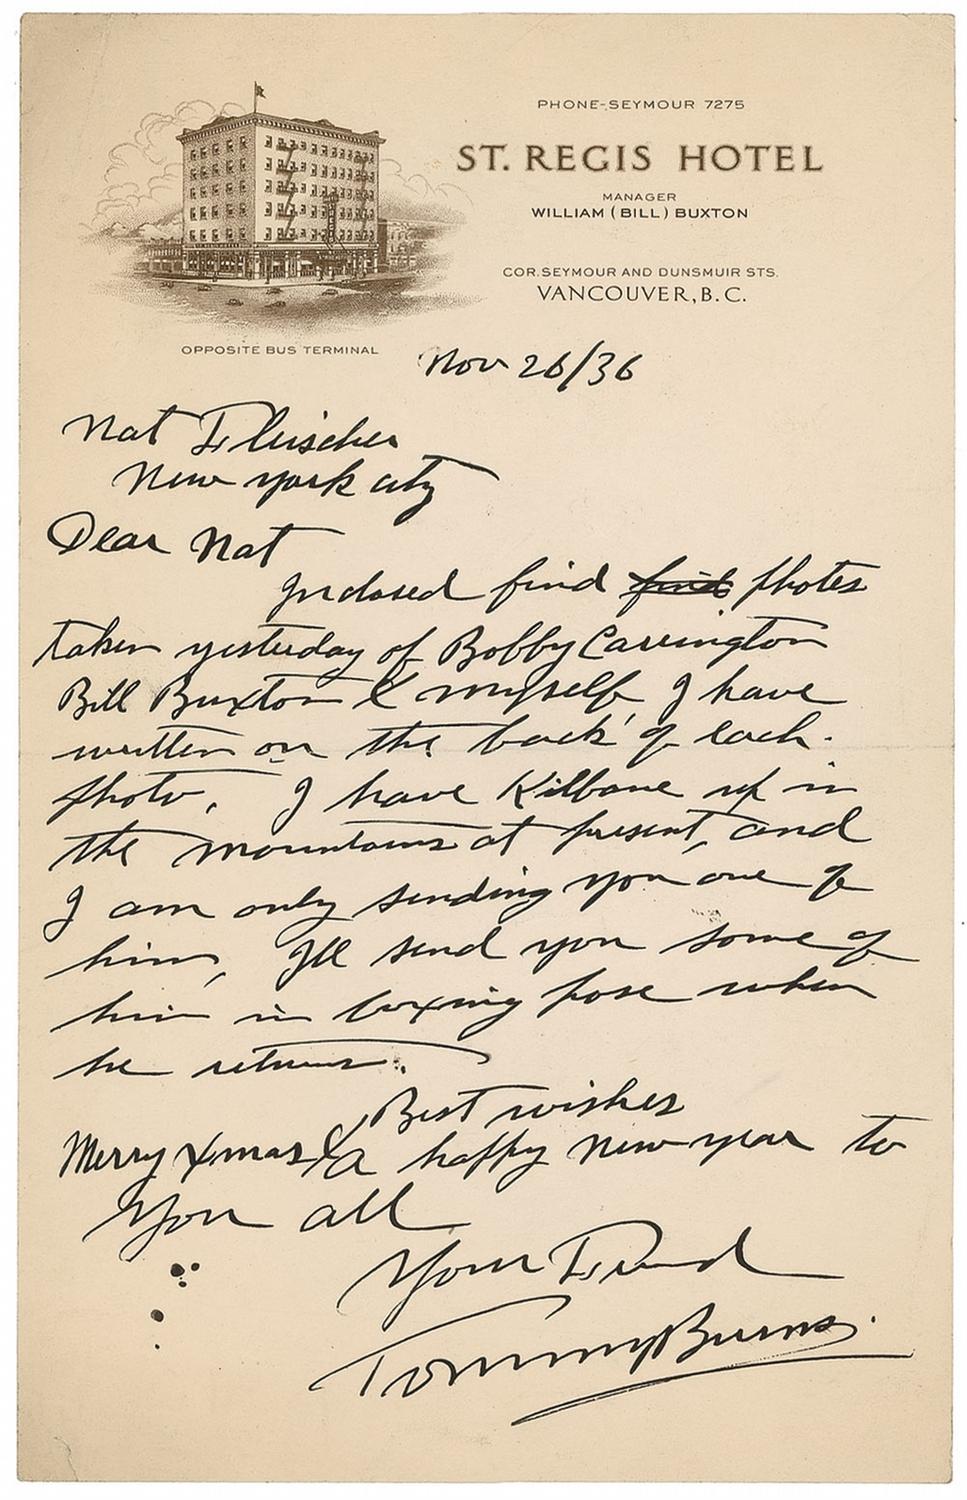 PHONE-SEYMOUR 7275
ST. REGIS HOTEL
MANAGER
WILLIAM (BILL) BUXTON
COR. SEYMOUR AND DUNSMUIR STS.
VANCOUVER, B.C.
OPPOSITE BUS TERMINAL
Nov 26/36
Nat Fleischer
New York city
Dear Nat
Inclosed find find photos
taken yesterday of Bobby Carrington
Bill Buxton & myself I have
written on the back of each
photo. I have Kilbane up in
the mountains at present, and
I am only sending you one of
him, I'll send you some of
him in boxing pose when
he returns.
Best wishes
Merry Xmas & a happy New year to
You all
Your Friend
Tommy Burns.